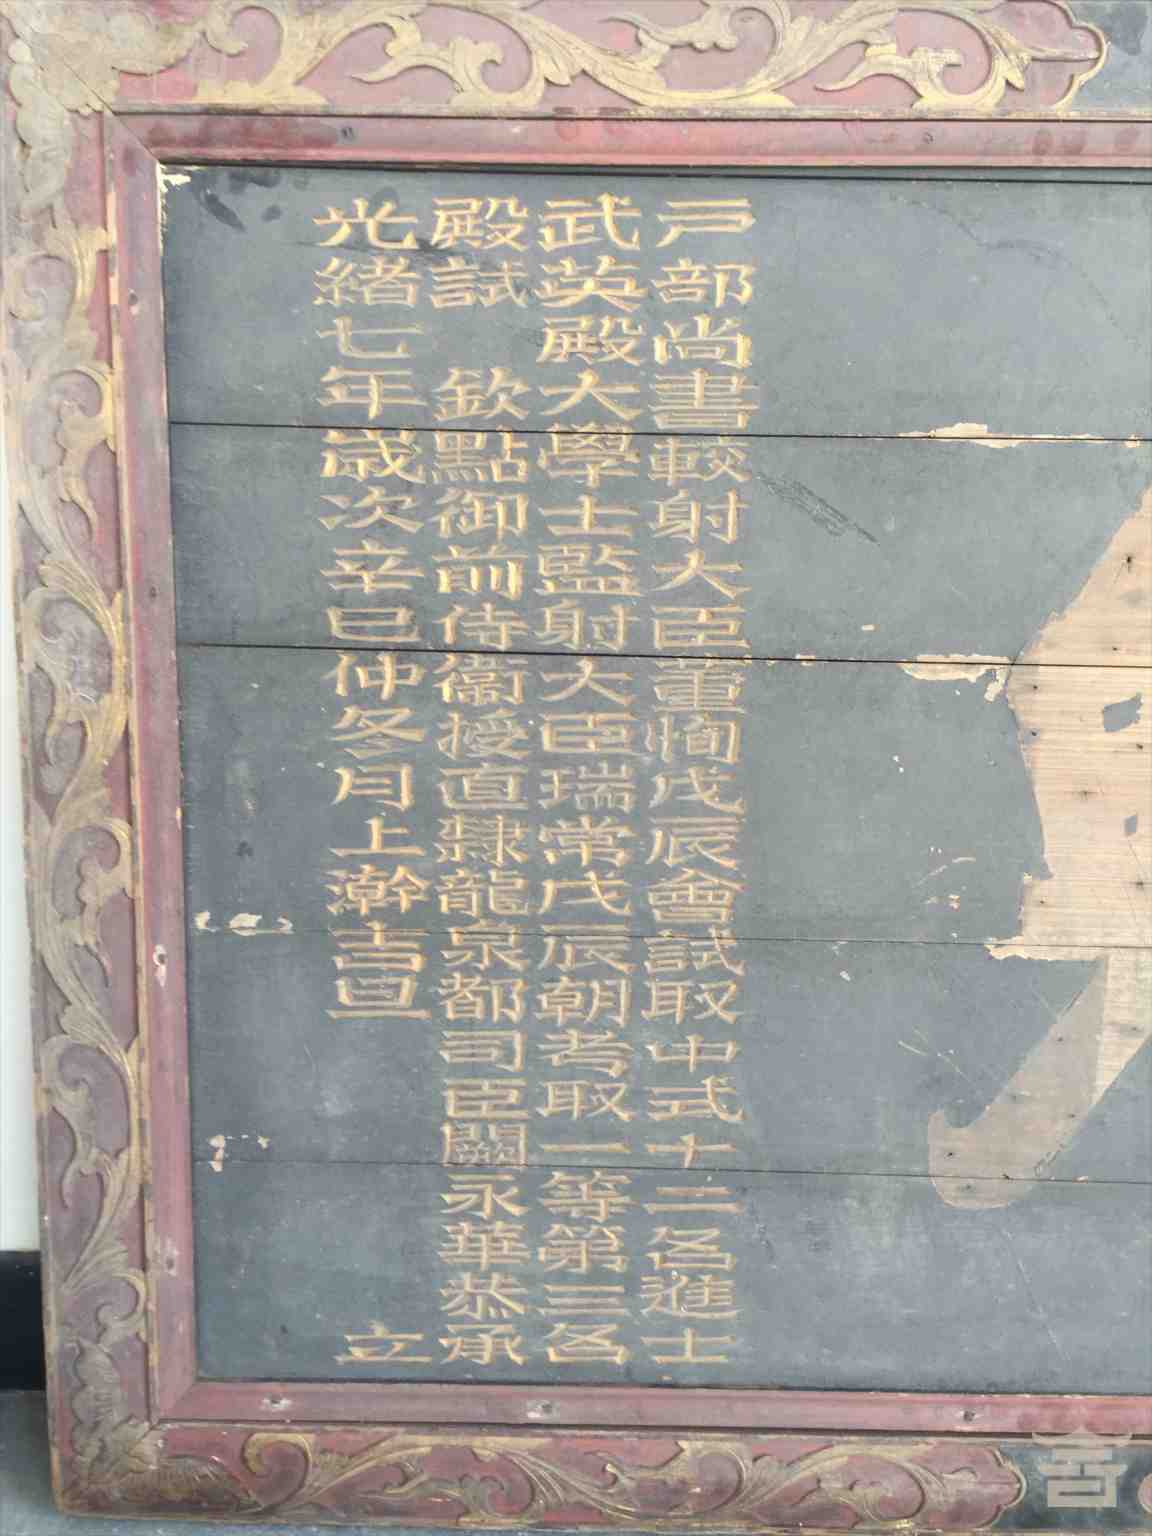 戶部尚書較射大臣董恂戊辰會試取中式十二名進士
武英殿大學士監射大臣瑞常戊辰朝考取一等第三名
殿試 欽點御前侍衛授直隸龍泉都司臣闕永華恭承
光緒七年歲次辛巳仲冬月上澣吉旦 立